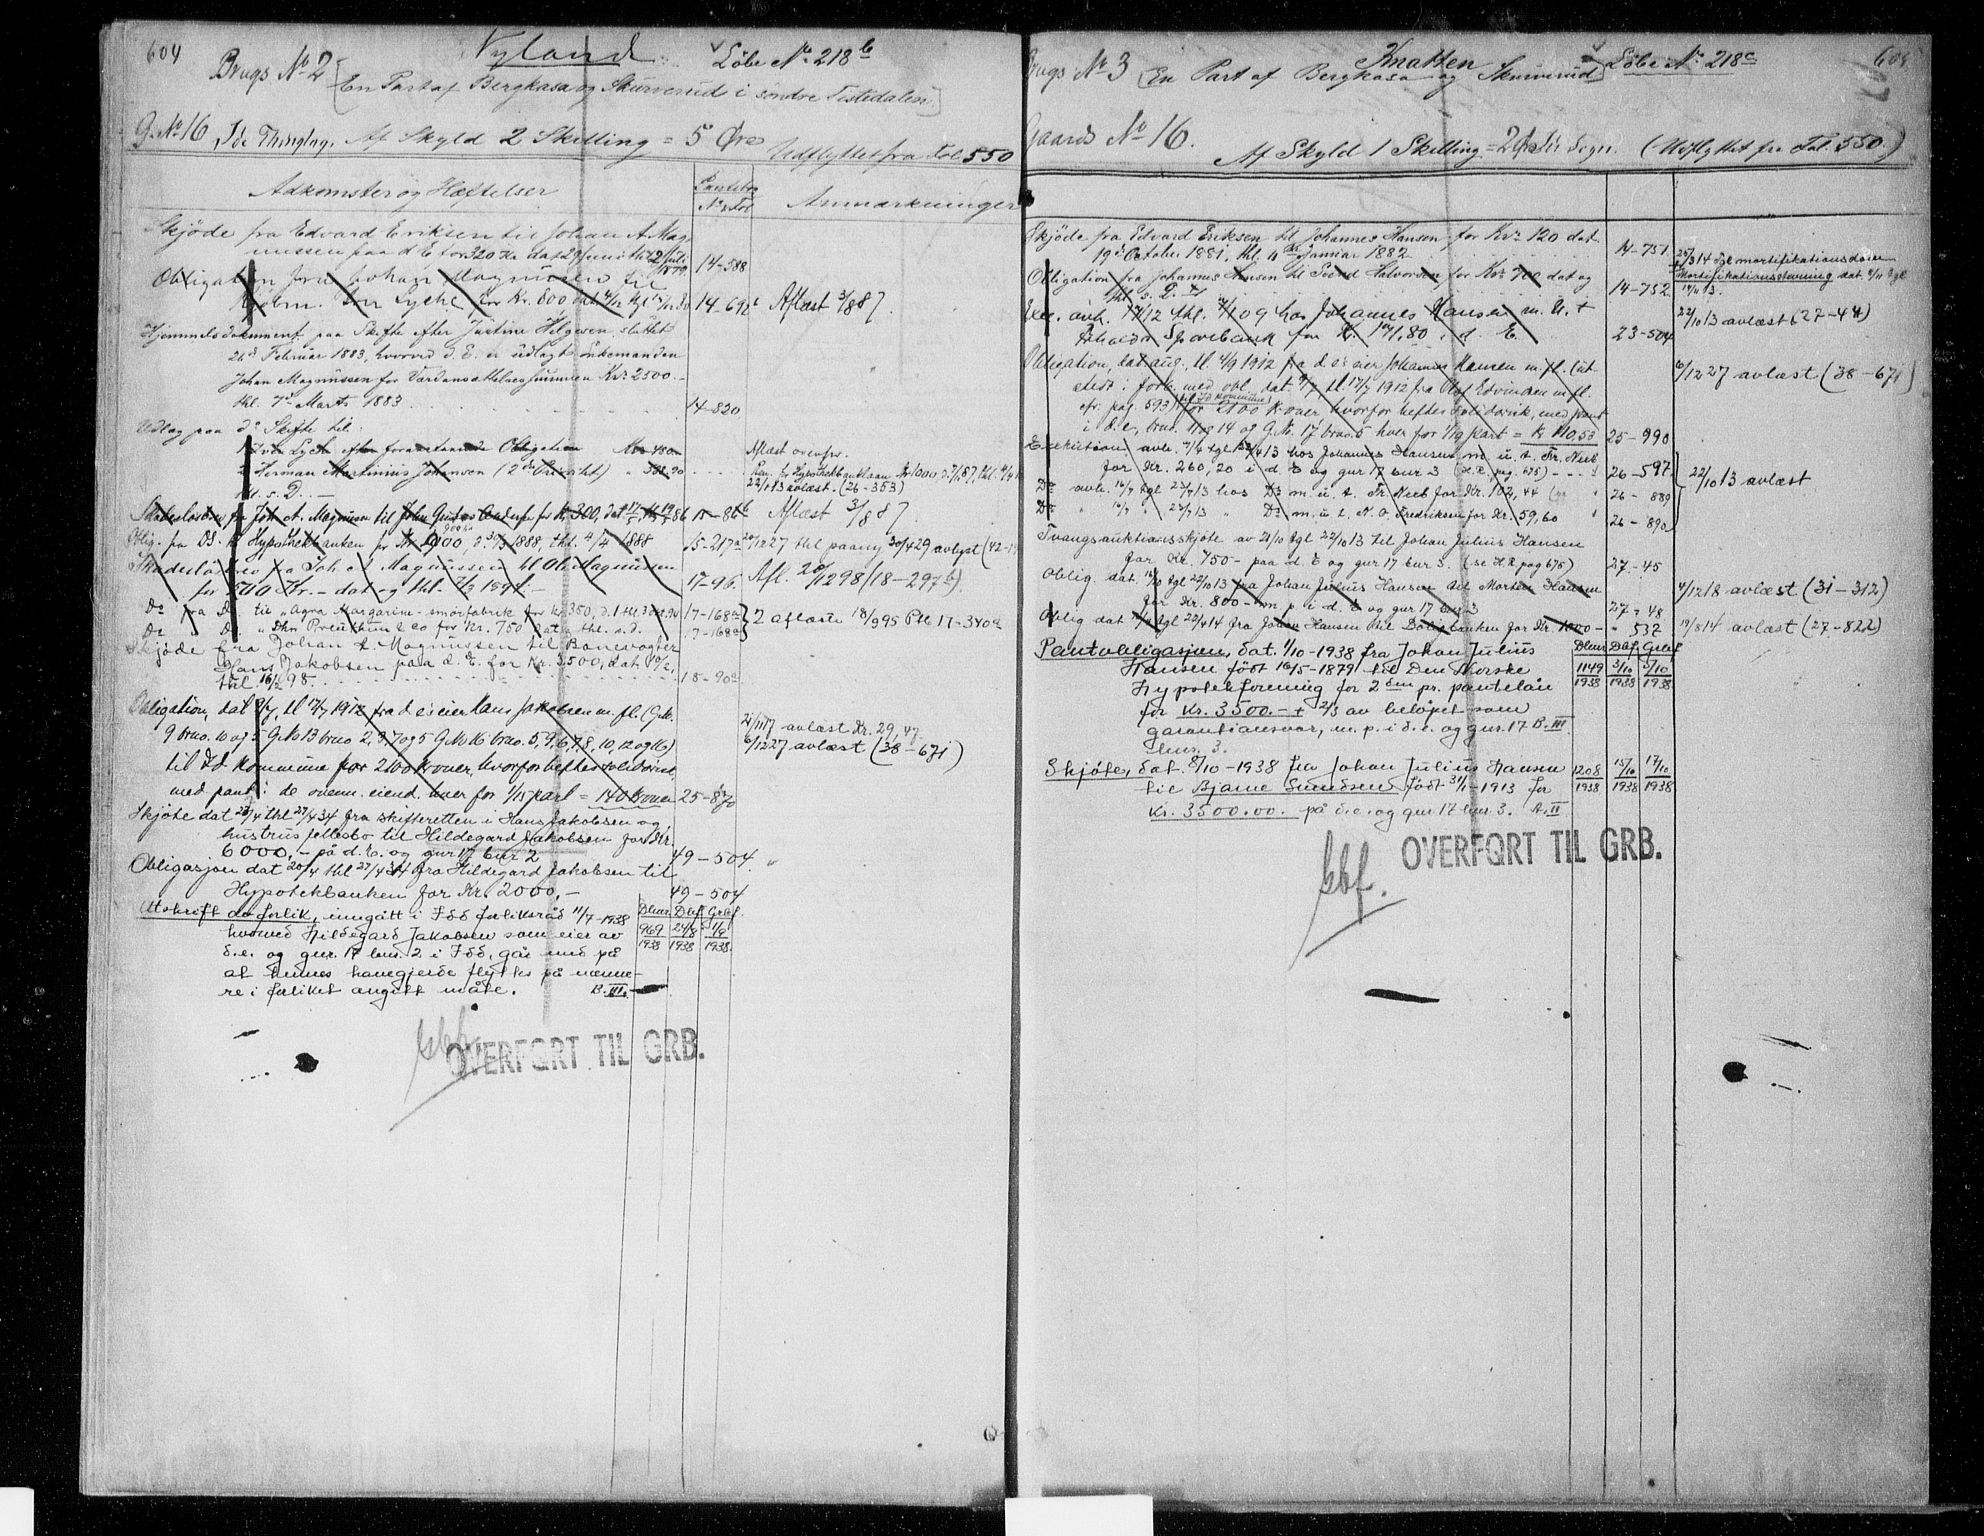 604
Brugs No 2 Nyland Löbe No 218 b
[En Part af Bergkasa og Skurverud i söndre Tistedalen]
G. No 16 Ide Thinglag. Af Skyld 2 Skilling = 5 Öre Udflyttet fra Fol 550
Adkomster og Hæftelser
Pantebog
No & Fol
Anmærkninger
Skjöde fra Edvard Eriksen til Johan A. Mag-
nussen paa d E for 320 Kr. dat 29 Juni thl 2 Juli 1879
14-588
Obligation fra Johan Magnussen til
Kr. 800
14-692
Aflæst 3/8 87.
Hjemmelsdokument paa Skifte efter Justine Helgesen, sluttet
26de Februar 1883, hvorved d. E. er udlagt Enkemanden
Johan Magnussen for Værdiansættelsessummen Kr. 2500.-
thl. 7de Marts 1883
14-820
Udlæg paa do Skifte til:
1 Iver Lyche efter foranstaaende Obligation Kr. 480.
2 Herman Martinius Johansen (2den Prioritet)
thl. s. D.
Aflæst ovenfor.
22/10 13 avlæst. (26-353)
Skadeslösbrev fra Joh. A. Magnussen til John Gustav Andersen for Kr. 300,
15-86 b
Aflæst 3/8 87
Oblig. fra DS. til Hypothekbanken for Kr. 1900, d. 20/3 1888, thl. 4/4 1888
15-217a
20/12 27 thl paany 30/4 29 avlyst
Skadeslösbrev fra Joh. A. Magnussen til Ole Magnussen
for 500 Kr. - dat og thl. 7/3 1894.-
17-96.
Afl. 20/12 98 (18-297 b).
Do fra D. til "Agra Margarin-smörfabrik for kr. 350,
17-168a
Do D. for Kr. 750 dat & thl. s. d.
17-168a
2 aflæste 18/9 95 Ptl 17-340a
Skjöde fra Johan A. Magnussen til Banevogter
Hans Jakobsen paa d. E. for Kr. 3500,
thl 16/2 98.
18-90a
Obligation, dat 9/7, tl 17/7 1912 fra d e's eier Hans Jakobsen m. fl. (G.No.
9 brno. 10 og 5 G.No 13 brno 2, 3, 7 og 5 G.No 16 brno. 5, 9, 6, 7, 8, 10, 12 og 16)
til Id Kommune for 2100 kroner, hvorfor heftes solidarisk,
med pant i de ovenn. eiend. hver for 1/15 part = 140 kroner
25-870
21/11 17 avlæst Kr. 29,47.
6/12 27 avlæst (38-671)
Skjöte dat 20/4 thl 27/4 34 fra skifteretten i Hans Jakobsen og
hustrus fellesbo til Hildegard Jakobsen for Kr.
6000,- på d. E. og gur 17 bur 2
49-504.
Obligasjon dat 20/4 thl 27/4 34 fra Hildegard Jakobsen til
Hypotekbanken for Kr. 2000,-
49-504
Utskrift av forlik, inngått i Idd forliksråd 11/7-1938
hvorved Hildegard Jakobsen som eier av
d.e. og gnr. 17 bnr. 2 i Idd, går med på
at hennes havegjerde flyttes på nærme-
re i forliket angitt måte. B. III.
Dbnr. Dbf. Grbf.
969 24/8 1/9
1938 1938 1938.
OVERFØRT TIL GRB.
605
Brugs No 3 Knatten Löbe No 218 c
[En Part af Bergkasa og Skurverud]
Gaards No 16. Af Skyld 1 Skilling = 2 Öre Ide Sogn. (Udflyttet fra Fol. 550.)
Skjöde fra Edvard Eriksen til Johannes Hansen for Kr. 120 dat
19de October 1881, thl. 11 Januar 1882
14-751
Obligation fra Johannes Hansen til Svend Halvorsen for Kr. 700 dat og
thl. s. D.
14-752
Exec. avh. 17/12 thl. 09 hos Johannes Hansen m. U. t
Sparebank for Kr. 171,80 i d. E.
23-504
22/10 13 avlæst (27-44)
Obligation, dat aug. tl 4/9 1912 fra d e's eier Johannes Hansen m. fl. ut-
stedt i forb. med obl. dat. 9/7, tl 17/7 1912 fra Olof Edvindsen m fl.
cfr. pag. 593) til Id kommune for 2100 kroner hvorfor heftes solidarisk, med pant
i d.e, brno. 11 og 14 og G.No. 17 brno. 5 hver for 1/19 part = Kr 110,53
25-990
6/12 27 avlæst (38-671)
Exekution avh. 7/4 tgl 22/4 13 hos Johannes Hansen m. u. t. Fr. Neeb
for Kr. 260,20 i d. E og gur 17 bur 3 (se R. pag 675)
26-597
Do avh. 16/7 tgl 23/7 13 hos Do m. u. t. Fr. Neeb for Kr. 102,44
26-889
Do " 16/7 " 23/7 13 " Do m. u. t. N. O. Fredriksen for Kr. 59,60
26-890
22/10 13 avlæst
Tvangsauktionsskjöte av 21/10 tgl 22/10 13 til Johan Julius Hansen
for Kr. 750- paa d. E og gur 17 bur 3. (se H.R pag 675)
27-45
Oblig. dat. 16/10 tgl 22/10 13 fra Johan Julius Hansen til Morten Hansen
for Kr. 800- m. p. i d. E og gur 17 bur 3
27-48
4/12 18 avlæst (31-312)
Oblig dat tgl 22/4 14 fra Johan Hansen til Banken for Kr. 1000-
" 537
19/8 14 avlæst (27-822)
Pantobligasjon, dat. 1/10-1938 fra Johan Julius
Hansen födt 16/5-1879 til Den Norske
Hypotekforening for 2den pr. pantelån
for Kr. 3500.- + 2/3 av belöpet som
garantiansvar, m. p. i d. e. og gnr. 17 B. III
bnr. 3.
Dbnr Dbf. Grbf
1149 3/10 5/10
1938 1938 1938
Skjöte, dat. 8/10-1938 fra Johan Julius Hansen
til Bjarne Gundersen födt 31/1-1913 for
Kr. 3500.00. på d.e. og gnr 17 bnr. 3. A. II
1208 15/10 17/10
1938 1938 1938
OVERFØRT TIL GRB.